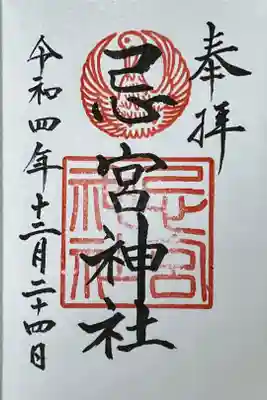 奉拝
忌宮神社
忌宮
神社
令和四年十二月二十四日